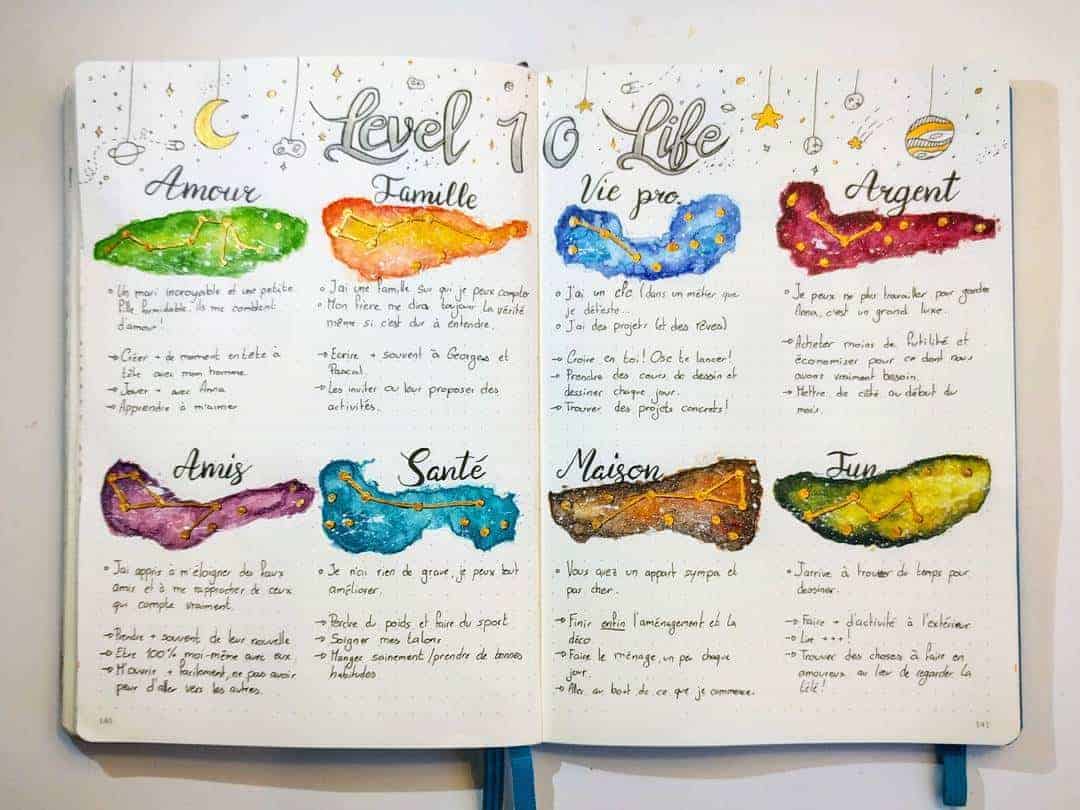 Level 10 Life
Amour
° Un mari incroyable et une petite
fille formidable. ils me comblent
d'amour!
→ Créer + de moment en tête à
tête avec mon homme
→ Jouer + avec Anna
→ Apprendre à m'aimer
Famille
° J'ai une famille sur qui je peux compter
° Mon frère me dira toujour la vérité
même si c'est dur à entendre.
→ Ecrire + souvent à Georges et
Pascal.
→ Les inviter ou leur proposer des
activités.
Vie pro.
° J'ai un cfc (dans un métier que
je déteste...
° J'ai des projets (et des rêves)
→ Croire en toi! Ose te lancer!
→ Prendre des cours de dessin et
dessiner chaque jour.
→ Trouver des projets concrets!
Argent
° Je peux ne plus travailler pour garder
Anna, c'est un grand luxe.
→ Acheter moins de futilité et
économiser pour ce dont nous
avons vraiment besoin.
→ Mettre de côté au début du
mois.
Amis
° J'ai appris à m'éloigner des faux
amis et à me rapprocher de ceux
qui compte vraiment.
→ Prendre + souvent de leur nouvelle
→ Etre 100% moi-même avec eux
→ M'ouvrir + facilement, ne pas avoir
peur d'aller vers les autres.
Santé
° Je n'ai rien de grave, je peux tout
améliorer.
→ Perdre du poids et faire du sport
→ Soigner mes talons
→ Manger sainement/prendre de bonnes
habitudes
Maison
° Vous avez un appart sympa et
pas cher.
→ Finir enfin l'aménagement et la
déco
→ Faire le ménage, un peu chaque
jour.
→ Aller au bout de ce que je commence.
Fun
° J'arrive à trouver du temps pour
dessiner.
→ Faire + d'activité à l'extérieur
→ Lire +++!
→ Trouver des choses à faire en
amoureux au lieu de regarder la
télé!
140
141